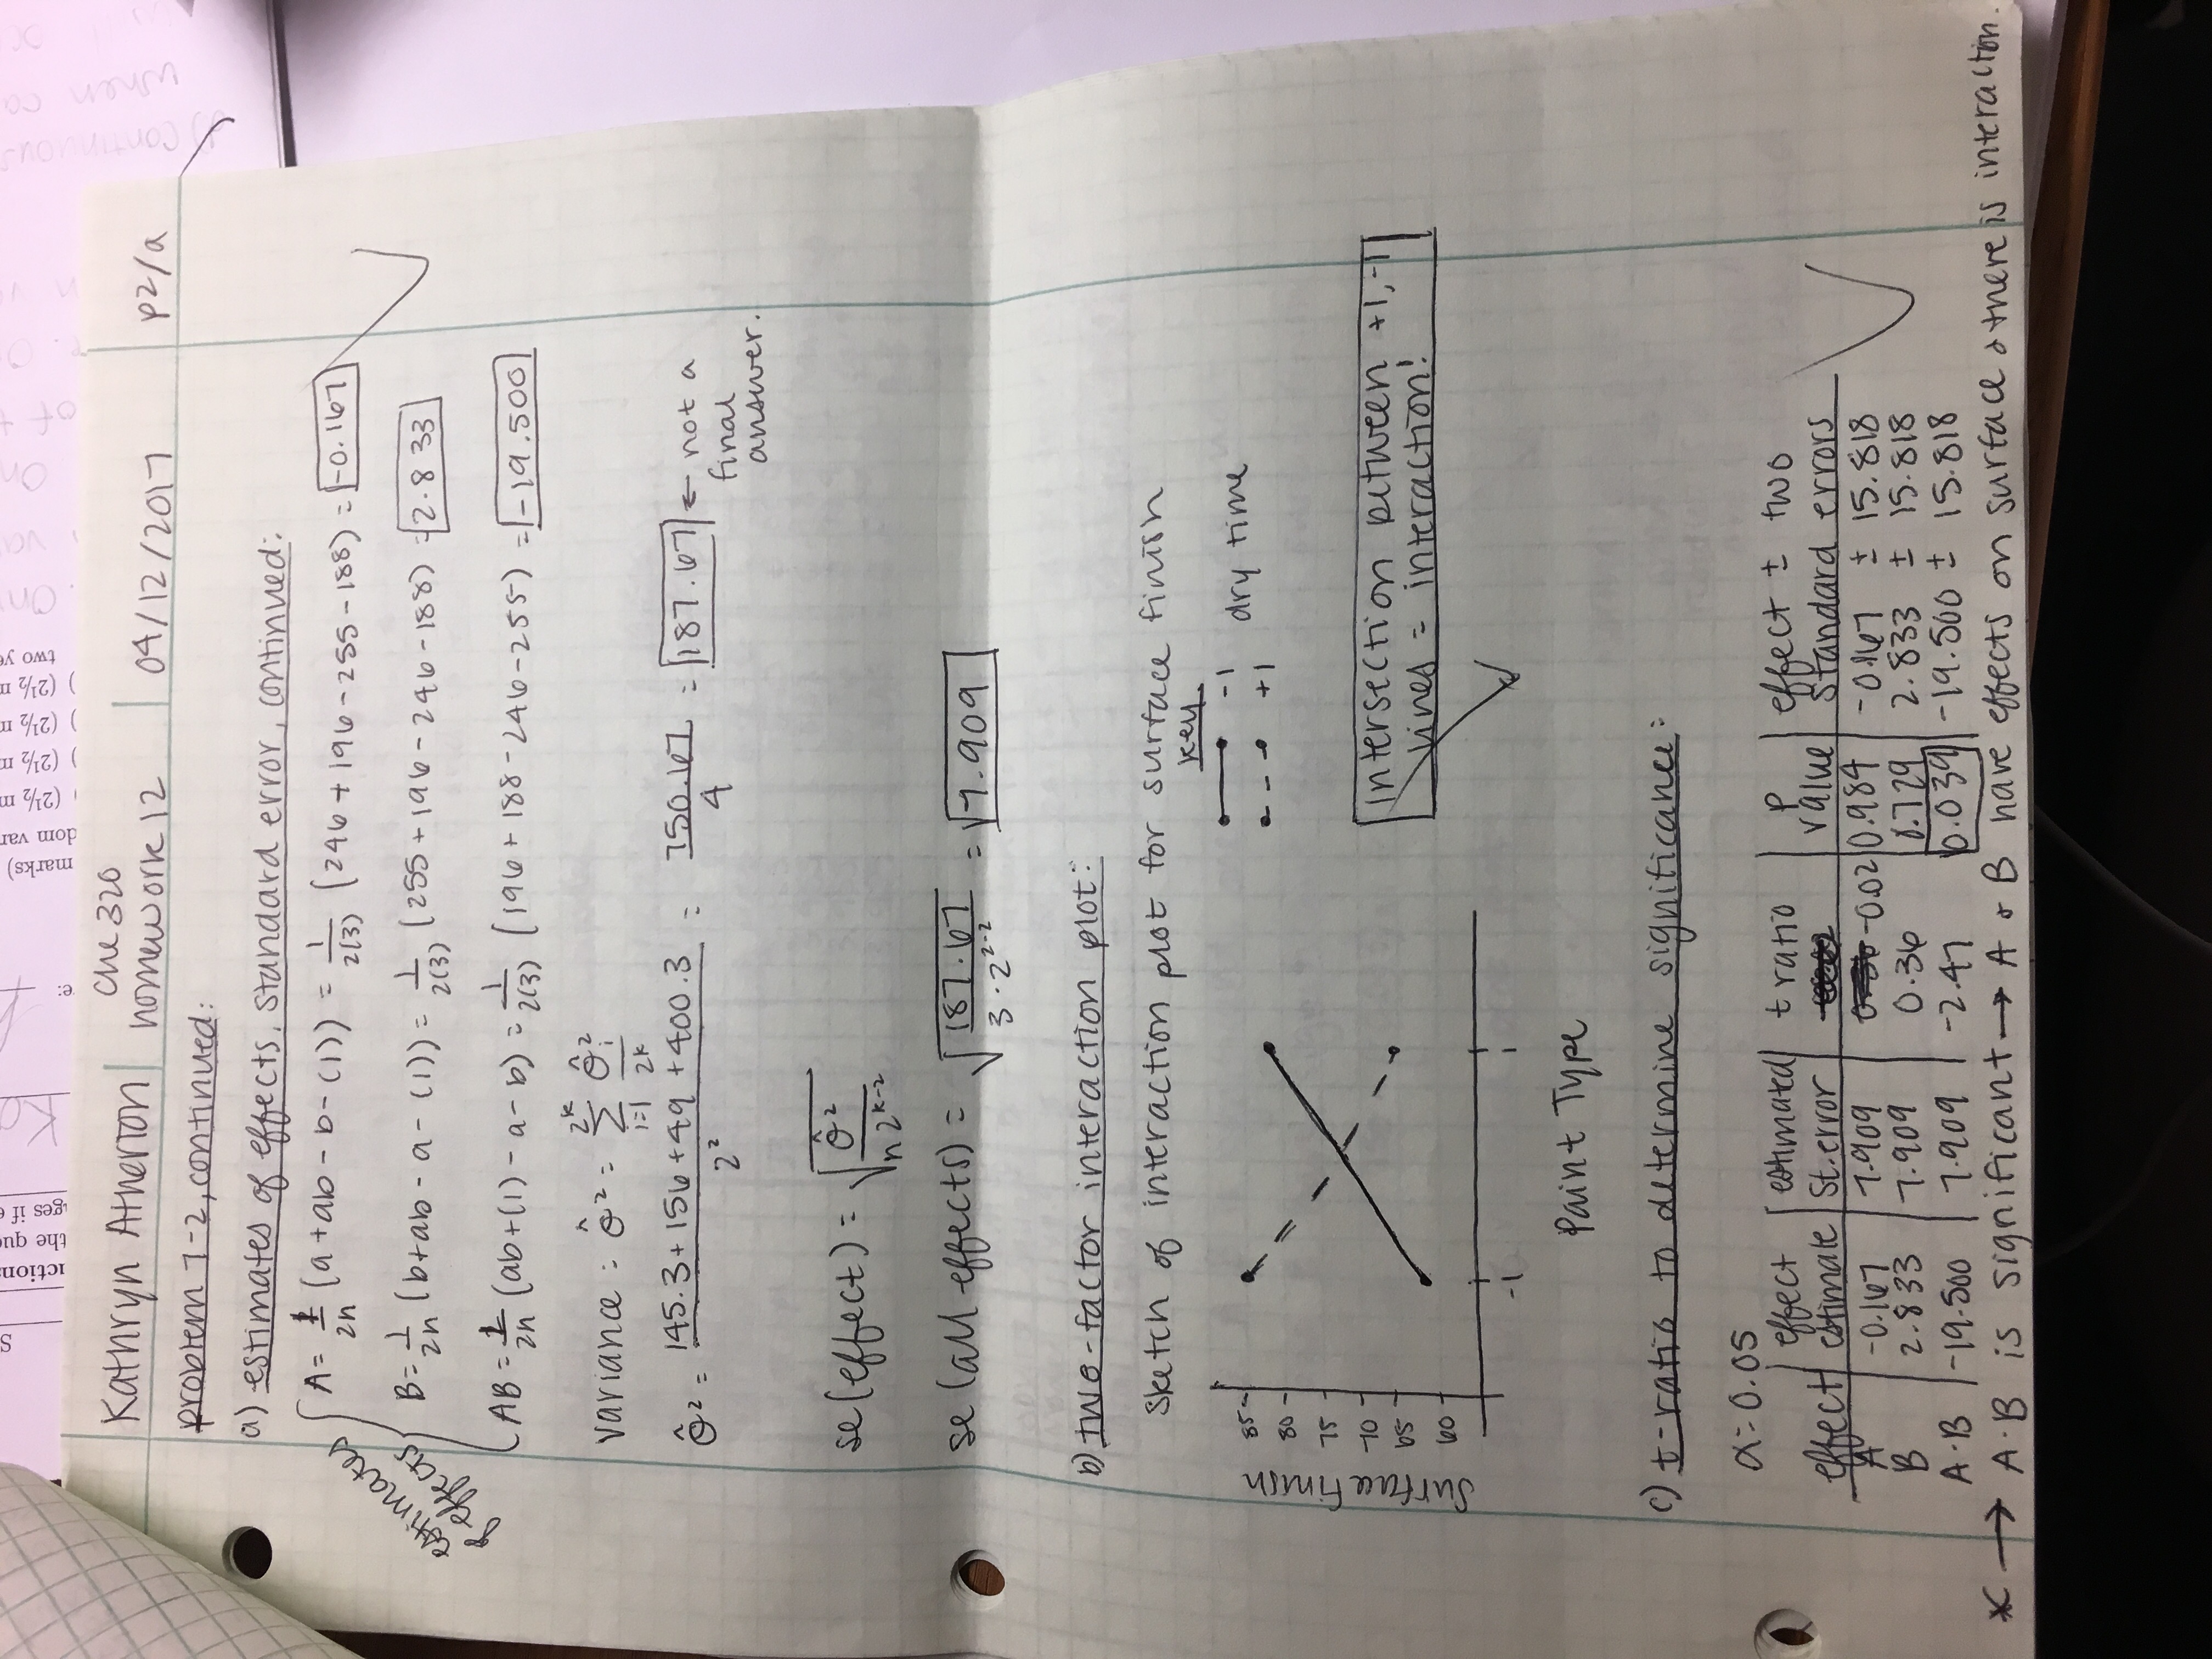 marks)
dom var
(2½ m
) (2½ m
) (2½ m
) (2½ m
two ye
uctions
the que
ges if e
Kathryn Atherton
Che 320
homework 12
04/12/2017
p2/a
problem 7-2, continued:
a) estimates of effects, standard error, continued:
estimates of effects
A = 1/2n (a + ab - b - (1)) = 1/2(3) (246 + 196 - 255 - 188) = -0.167
B = 1/2n (b + ab - a - (1)) = 1/2(3) (255 + 196 - 246 - 188) = 2.833
AB = 1/2n (ab + (1) - a - b) = 1/2(3) (196 + 188 - 246 - 255) = -19.500
variance: σ̂² = Σ_{i=1}^{2^k} σ̂_i²/2^k
σ̂² = (145.3 + 156 + 49 + 400.3)/2² = 750.67/4 = 187.67 ← not a
final
answer.
se(effect) = √(σ̂²/n2^{k-2})
se(all effects) = √(187.67/3·2^{2-2}) = √7.909
b) two-factor interaction plot:
sketch of interaction plot for surface finish
key
-1
+1
dry time
Surface Finish
85
80
75
70
65
60
-1 1
Paint Type
intersection between +1, -1
lines = interaction!
c) t-ratio to determine significance:
α = 0.05
effect | effect estimate | estimated St. error | t ratio | P value | effect ± two standard errors
A | -0.167 | 7.909 | -0.02 | 0.984 | -0.167 ± 15.818
B | 2.833 | 7.909 | 0.36 | 0.729 | 2.833 ± 15.818
A·B | -19.500 | 7.909 | -2.47 | 0.039 | -19.500 ± 15.818
* → A·B is significant → A & B have effects on surface & there is interaction.